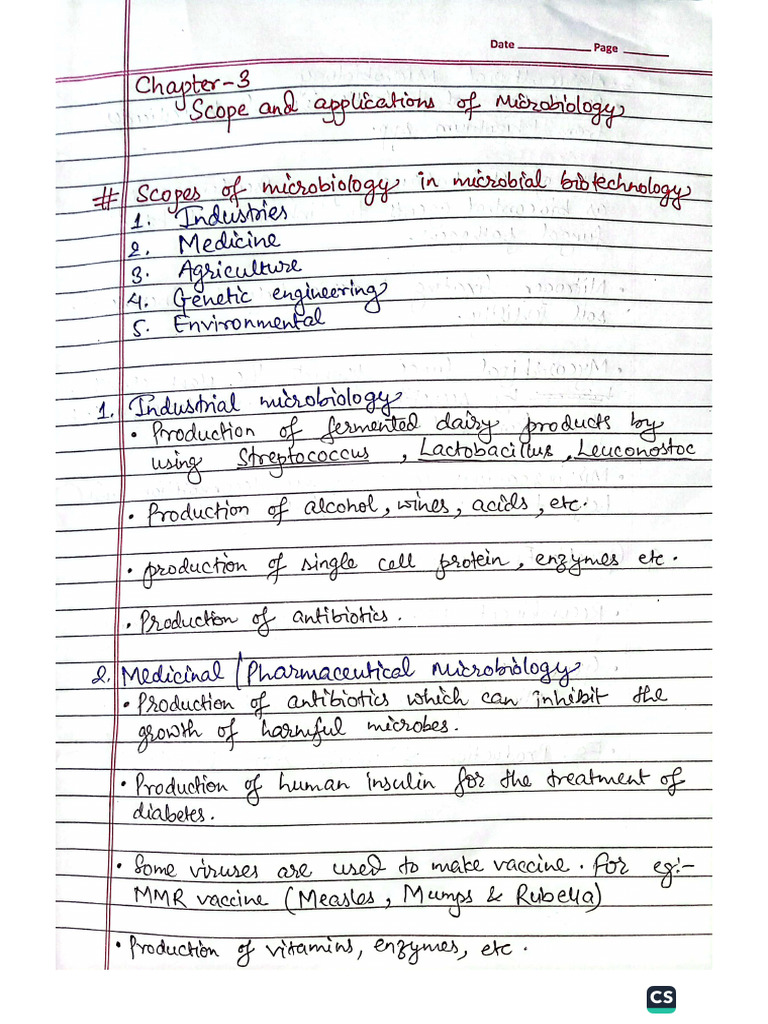 Date ________ Page ______
Chapter-3
Scope and applications of Microbiology
# Scopes of microbiology in microbial biotechnology
1. Industries
2. Medicine
3. Agriculture
4. Genetic engineering
5. Environmental
1. Industrial microbiology
• Production of fermented dairy products by
using Streptococcus, Lactobacillus, Leuconostoc
• Production of alcohol, wines, acids, etc.
• production of single cell protein, enzymes etc.
• Production of antibiotics.
2. Medicinal / Pharmaceutical Microbiology
• Production of antibiotics which can inhibit the
growth of harmful microbes.
• Production of human insulin for the treatment of
diabetes.
• Some viruses are used to make vaccine. For eg:-
MMR vaccine (Measles, Mumps & Rubella)
• Production of vitamins, enzymes, etc.
CS